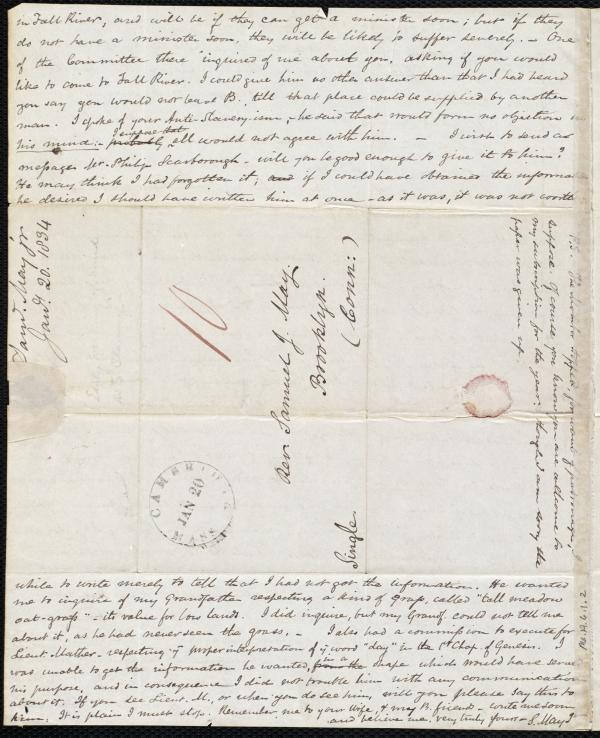 in Fall River, and will be if they can get a minister soon; but if they
do not have a minister soon, they will be likely to suffer severely. – One
of the Committee there inquired of me about you, asking if you would
like to come to Fall River. I could give him no other answer than that I had heard
you say you would not leave B. till that place could be supplied by another
man. I spoke of your Anti-Slavery-ism, – he said that would form no objection in
his mind: – probably I suppose that all would not agree with him. – I wish to send a
message to Mr. Philip Scarborough – will you be good enough to give it to him?
He may think I had forgotten it, and if I could have obtained the informa
he desired I should have written him at once – as it was, it was not worth
Saml. May Jr.
Jany. 20. 1834
10
Rev. Samuel J. May.
Brooklyn.
(Conn:)
Single
CAMBRIDGE
JAN 20
MASS
P.S. The
suppose. Of course you know you are welcome to
my subscription for the year: – though I am sorry the
paper was given up.
while to write merely to tell that I had not got the information. He wanted
me to inquire of my Grandfather respecting a kind of grass, called "tall meadow
oat-grass" – its value for low lands. I did inquire, but my Grandf. could not tell me
about it, as he had never seen the grass. – I also had a commission to execute for
Lieut. Mather, respecting ye proper interpretation of ye word "day" in the 1st Chap. of Genesis. I
was unable to get the information he wanted, from in a shape which would have served
his purpose, and in consequence I did not trouble him with any communication
about it. If you see Lieut. M., or when you do see him, will you please say this to
him. It is plain I must stop. Remember me to your Wife, & may B. friends – write me soon
and believe me, very truly, yours – S. May Jr
Ms.A.6.1.2